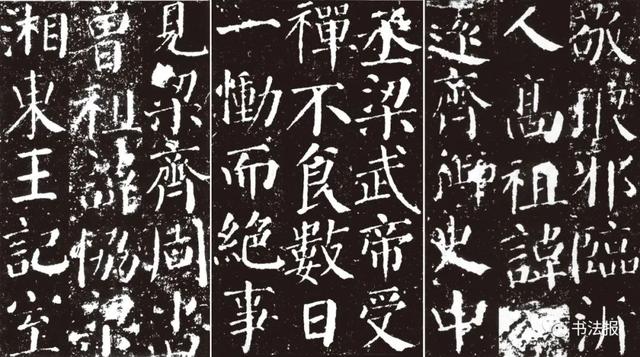 敬琅邪臨沂
人高祖諱
遠齊御史中
丞梁武帝受
禪不食數日
一慟而絕事
見梁齊周書
曾祖諱協梁
湘東王記室
书法报